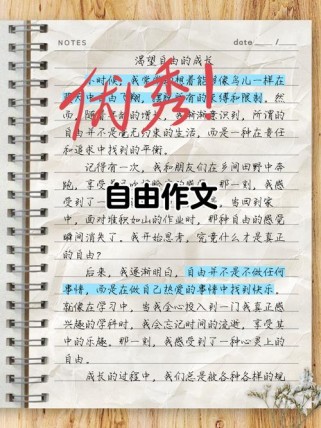 NOTES
date
渴望自由的成长
小时候,我常常
想着能够像鸟儿一样在
自由飞翔,
有的束缚和限制。然
而,随着年龄的增长,我渐渐意识到,所谓的
自由并不是无拘无束的生活,而是一种在责任
和追求中找到的平衡。
记得有一次,我和朋友们在乡间田野中奔
跑,享受
那一刻,我感
受到了一
当回到家
中,面对堆积如山的作业时,那种自由的感觉
瞬间消失了。我开始思考,究竟什么才是真正
的自由?
后来,我逐渐明白,自由并不是不做任何
事情,而是在做自己热爱的事情中找到快乐。
就像在学习中,当我全心投入到一门我真正感
兴趣的学科时,我会忘记时间的流逝,享受其
中的乐趣。那一刻,我感受到了一种心灵上的
自由。
成长的过程中,我们总是被各种各样的规
优秀!
自由作文